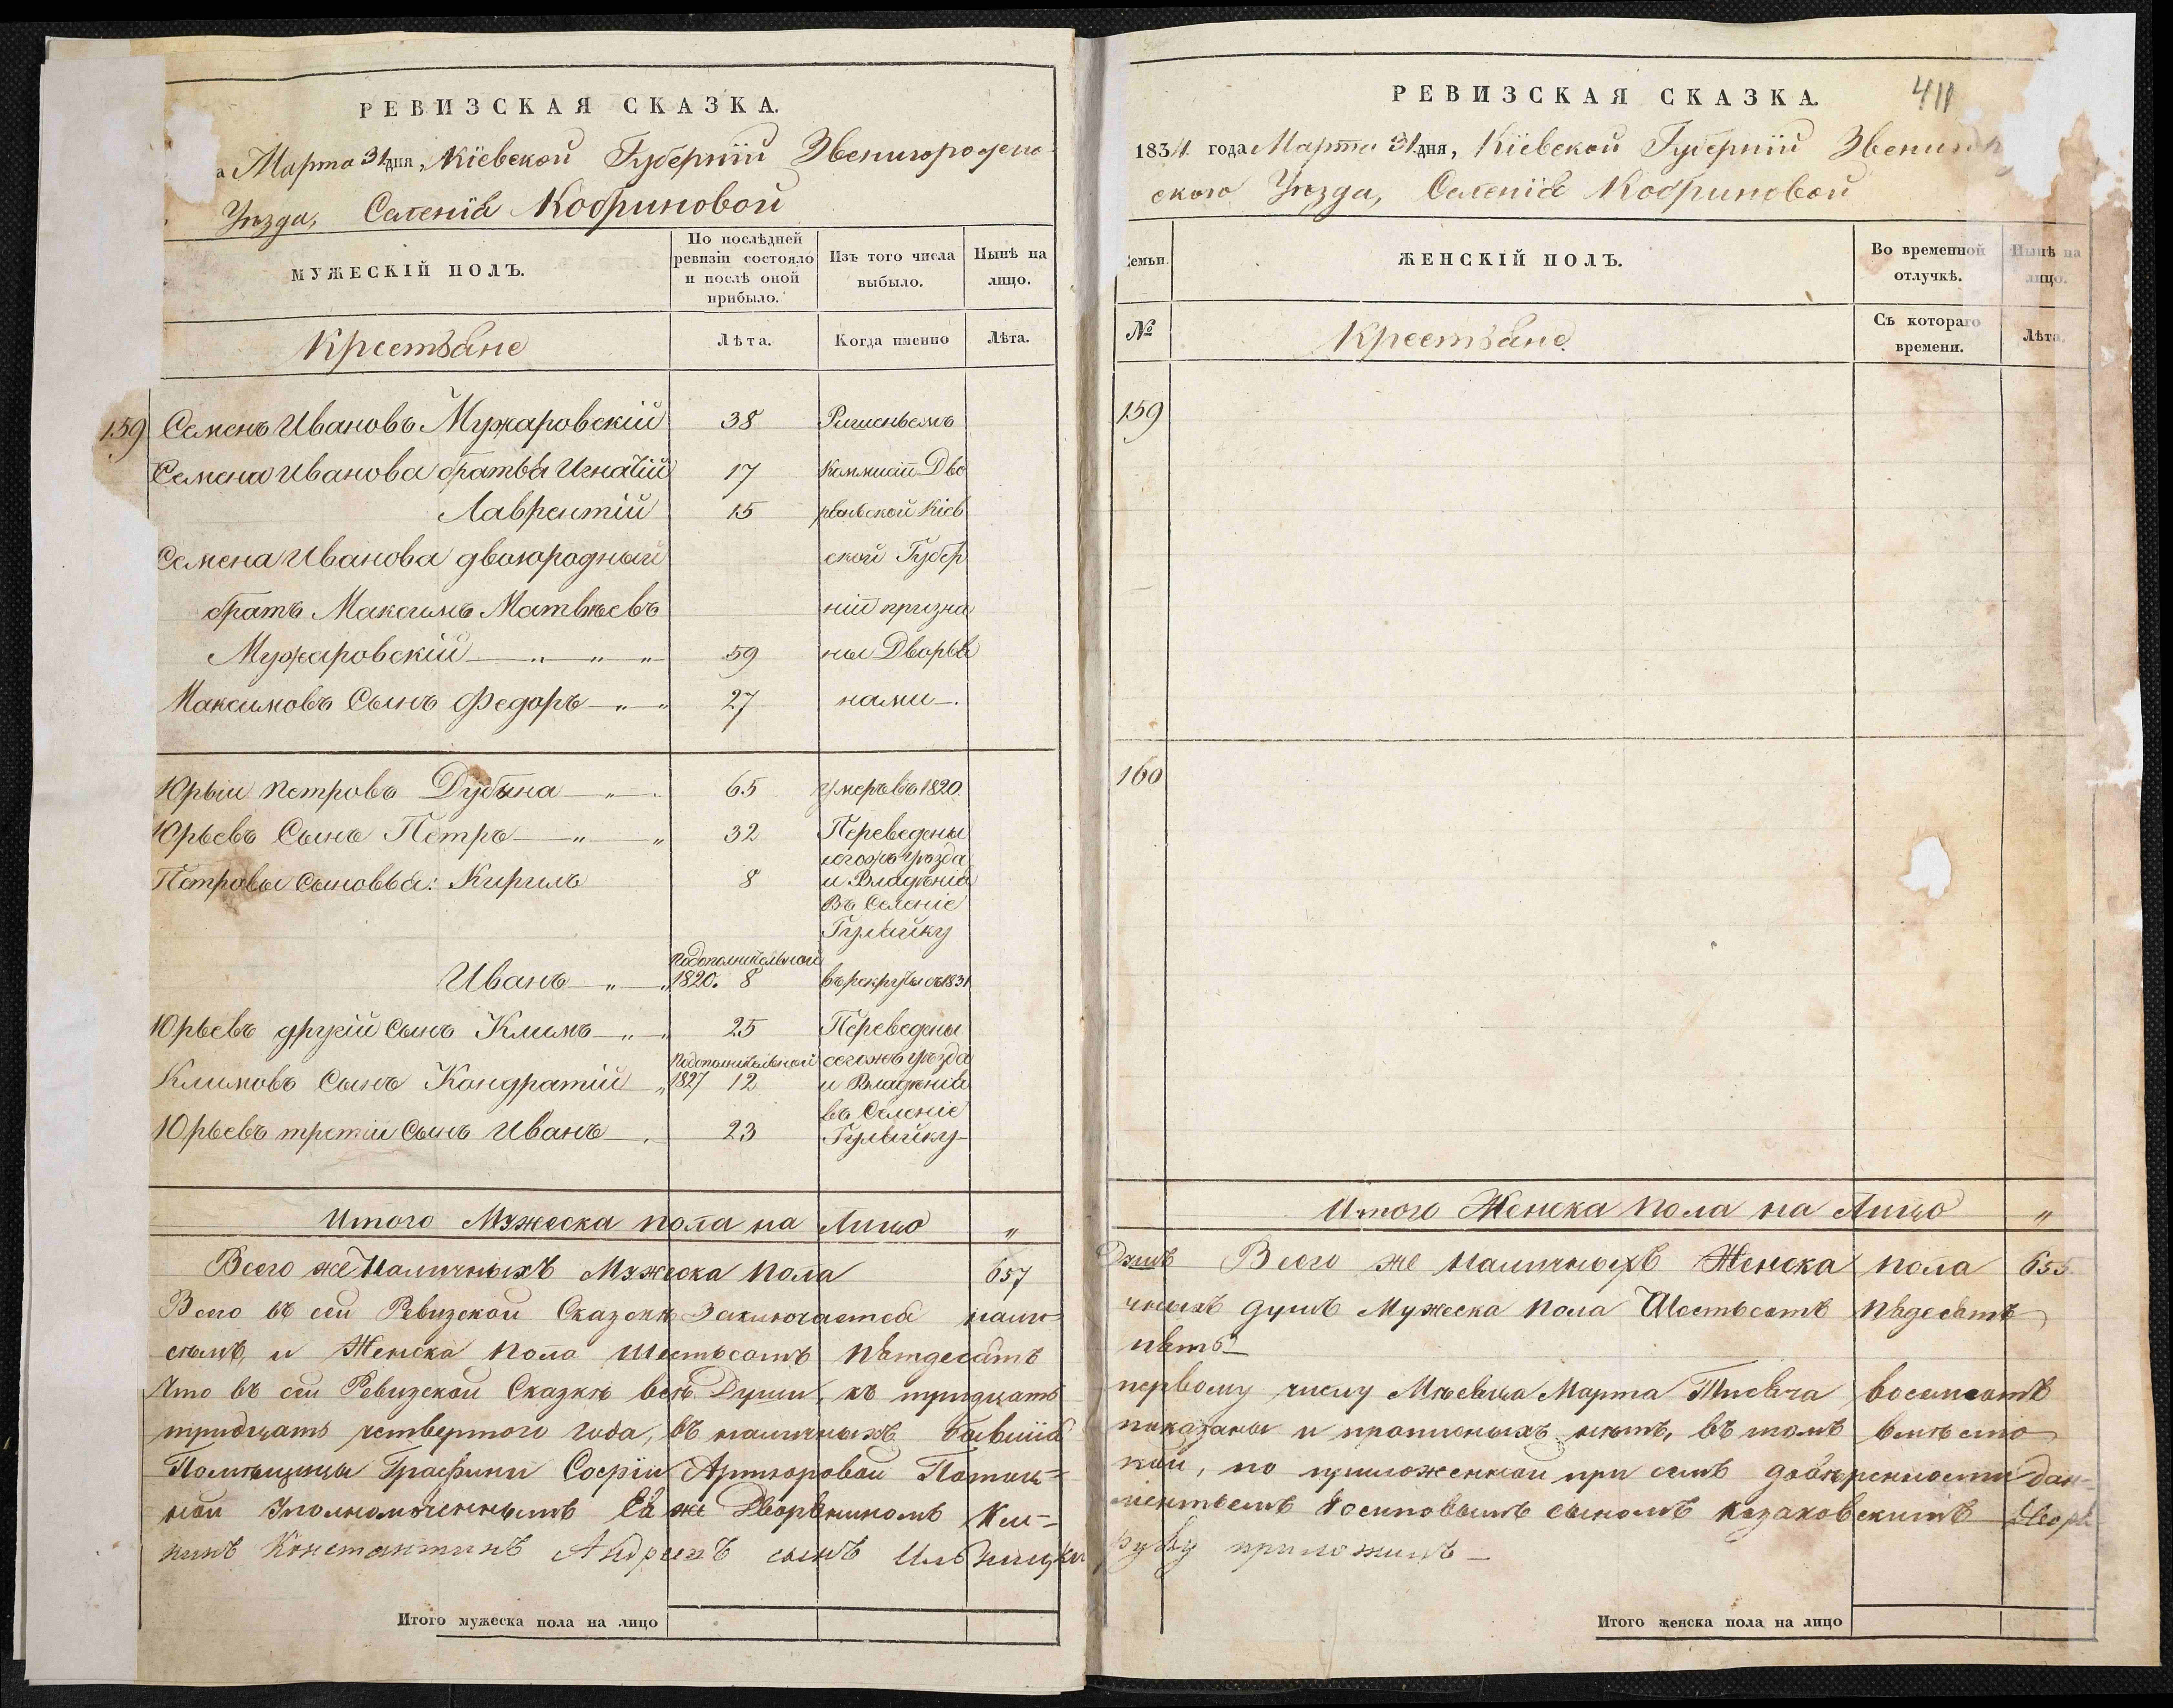 РЕВИЗСКАЯ СКАЗКА.
а Марта 31 дня, Кіевской Губерніи Звенигородско-
Уѣзда, Селенія Кобриновой
МУЖЕСКІЙ ПОЛЪ.
По послѣдней ревизіи состояло и послѣ оной прибыло.
Изъ того числа выбыло.
Нынѣ на лицо.
Крестьяне
Лѣта.
Когда именно
Лѣта.
159 Семенъ Ивановъ Мужаровскій 38 Ришеньемъ
Семена Иванова братья Игнатій 17 Коммисіи Дво
Лаврентій 15 рянской Кіев
Семена Иванова двоюродный ской Губер
братъ Максимъ Матвѣевъ ніи призна
Мужаровскій — „ „ „ 59 ны Дворя
Максимовъ Сынъ Федоръ — „ „ 27 нами —.
Юрьи Петровъ Дубына — „ — 65 умеръ въ 1820.
Юрьевъ Сынъ Петръ — „ — „ 32 Переведены
сегожъ уѣзда
Петровы Сыновья: Кирилъ 8 и Владѣнія
Въ Селеніе
Гуляйку
Подополнительной
Иванъ — „ — „ 1820. 8 въ рекруты въ 1831
Юрьевъ другій Сынъ Климъ — „ „ 25 Переведены
Подополнительной сегожъ уѣзда
Климовъ Сынъ Кондратій „ 1827 12 и Владѣнія
въ Селеніе
Юрьевъ третій Сынъ Иванъ — . 23 Гуляйку —
Итого Мужеска пола на Лицо „
Всего же Наличныхъ Мужеска пола 657
Всего въ сей Ревизской Сказкѣ Заключается нали-
семъ, и Женска пола шестьсотъ пятдесятъ
Что въ сей Ревизской Сказкѣ всѣ Души, къ тридцать
тридцать четвертого года, въ наличныхъ бывшія
Помѣщицы Графини Софіи Артуровой Потоц-
кой Уполномоченнымъ Ея же Дворяниномъ Кли-
нинъ Константинъ Андреевъ сынъ
Итого мужеска пола на лицо
РЕВИЗСКАЯ СКАЗКА.
411
1834. года Марта 31 дня, Кіевской Губерніи Звениго
ского Уѣзда, Селенія Кобриновой
Семьи.
ЖЕНСКІЙ ПОЛЪ.
Во временной отлучкѣ.
Нынѣ на лицо.
№
Крестьяне.
Съ котораго времени.
Лѣта.
159
160
Итого Женска Пола на Лицо „
Душъ Всего же Наличныхъ Женска пола 655.
чныхъ душъ Мужеска пола Шестьсотъ пядесятъ
пять —
первому числу Мѣсяца Марта Тисяча восемсотъ
показаны и прописныхъ нѣтъ, въ томъ вмѣсто
кой, по приложенной при семъ довѣренности дан-
ментьемъ Іосиповымъ сыномъ Казаковскимъ Дворя
руку приложилъ —
Итого женска пола на лицо